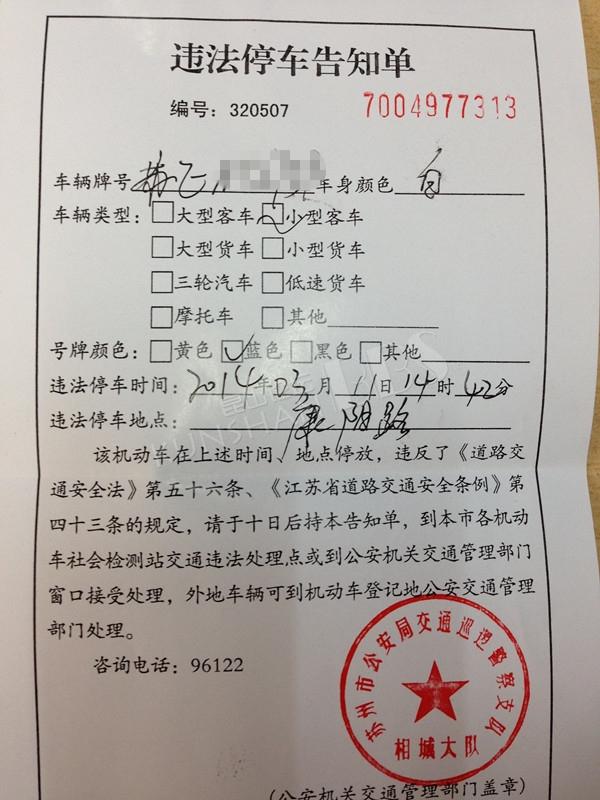 违法停车告知单
编号：320507 7004977313
车辆牌号 车身颜色 白
车辆类型：□大型客车 ☑小型客车
□大型货车 □小型货车
□三轮汽车 □低速货车
□摩托车 □其他
号牌颜色：□黄色 ☑蓝色 □黑色 □其他
违法停车时间：2014年03月11日14时42分
违法停车地点：康阳路
该机动车在上述时间、地点停放，违反了《道路交
通安全法》第五十六条、《江苏省道路交通安全条例》第
四十三条的规定，请于十日后持本告知单，到本市各机动
车社会检测站交通违法处理点或到公安机关交通管理部门
窗口接受处理，外地车辆可到机动车登记地公安交通管理
部门处理。
咨询电话：96122
苏州市公安局交通巡逻警察支队
相城大队
（公安机关交通管理部门盖章）